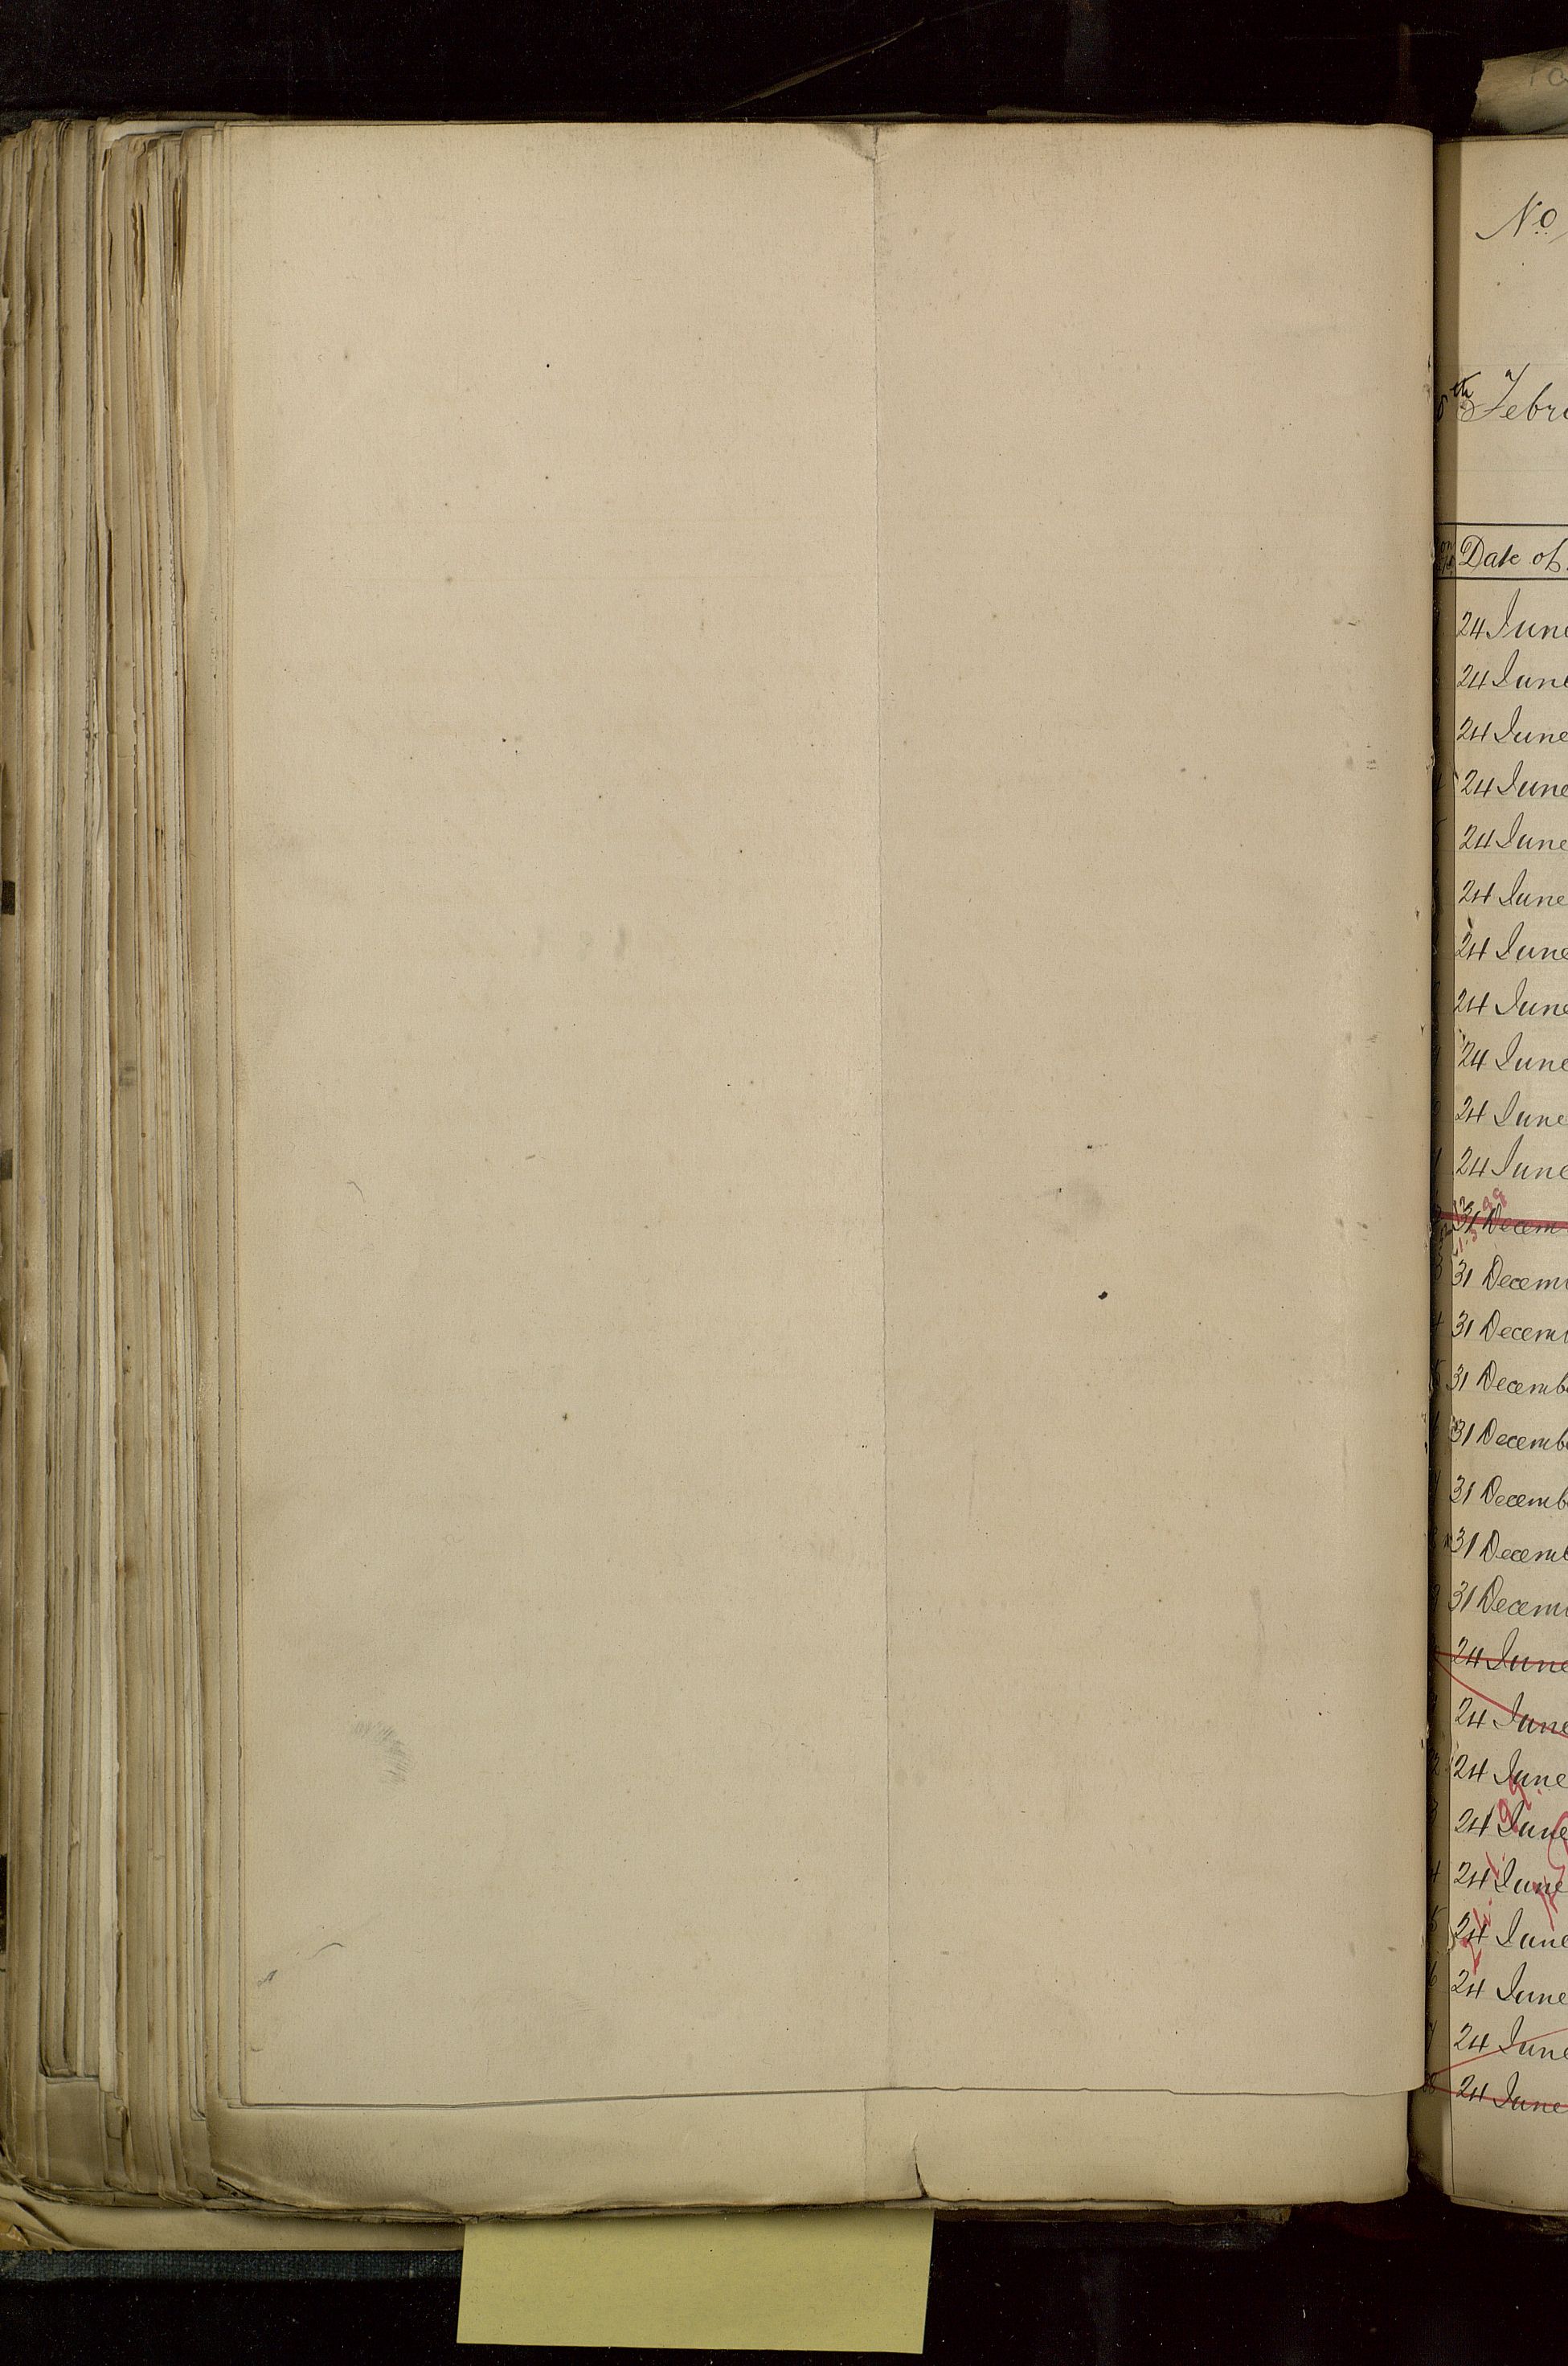 No
th Febr
Date of
24 June
24 June
24 June
24 June
24 June
24 June
24 June
24 June
24 June
24 June
24 June
31 Decem
31 Decem
31 Decem
31 Decemb
31 Decemb
31 Decemb
31 Decemb
31 Decem
24 June
24 June
24 June
24 June
24 June
24 June
24 June
24 June
24 June